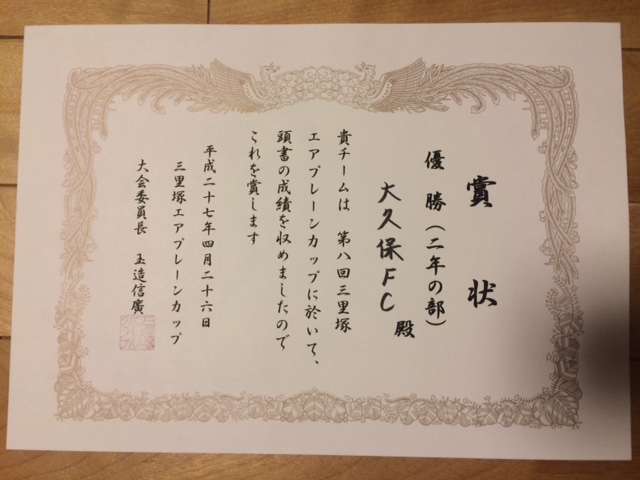 賞状
優勝(二年の部)
大久保FC 殿
貴チームは 第八回三里塚
エアプレーンカップに於いて、
頭書の成績を収めましたので
これを賞します
平成二十七年四月二十六日
三里塚エアプレーンカップ
大会委員長 玉造信廣